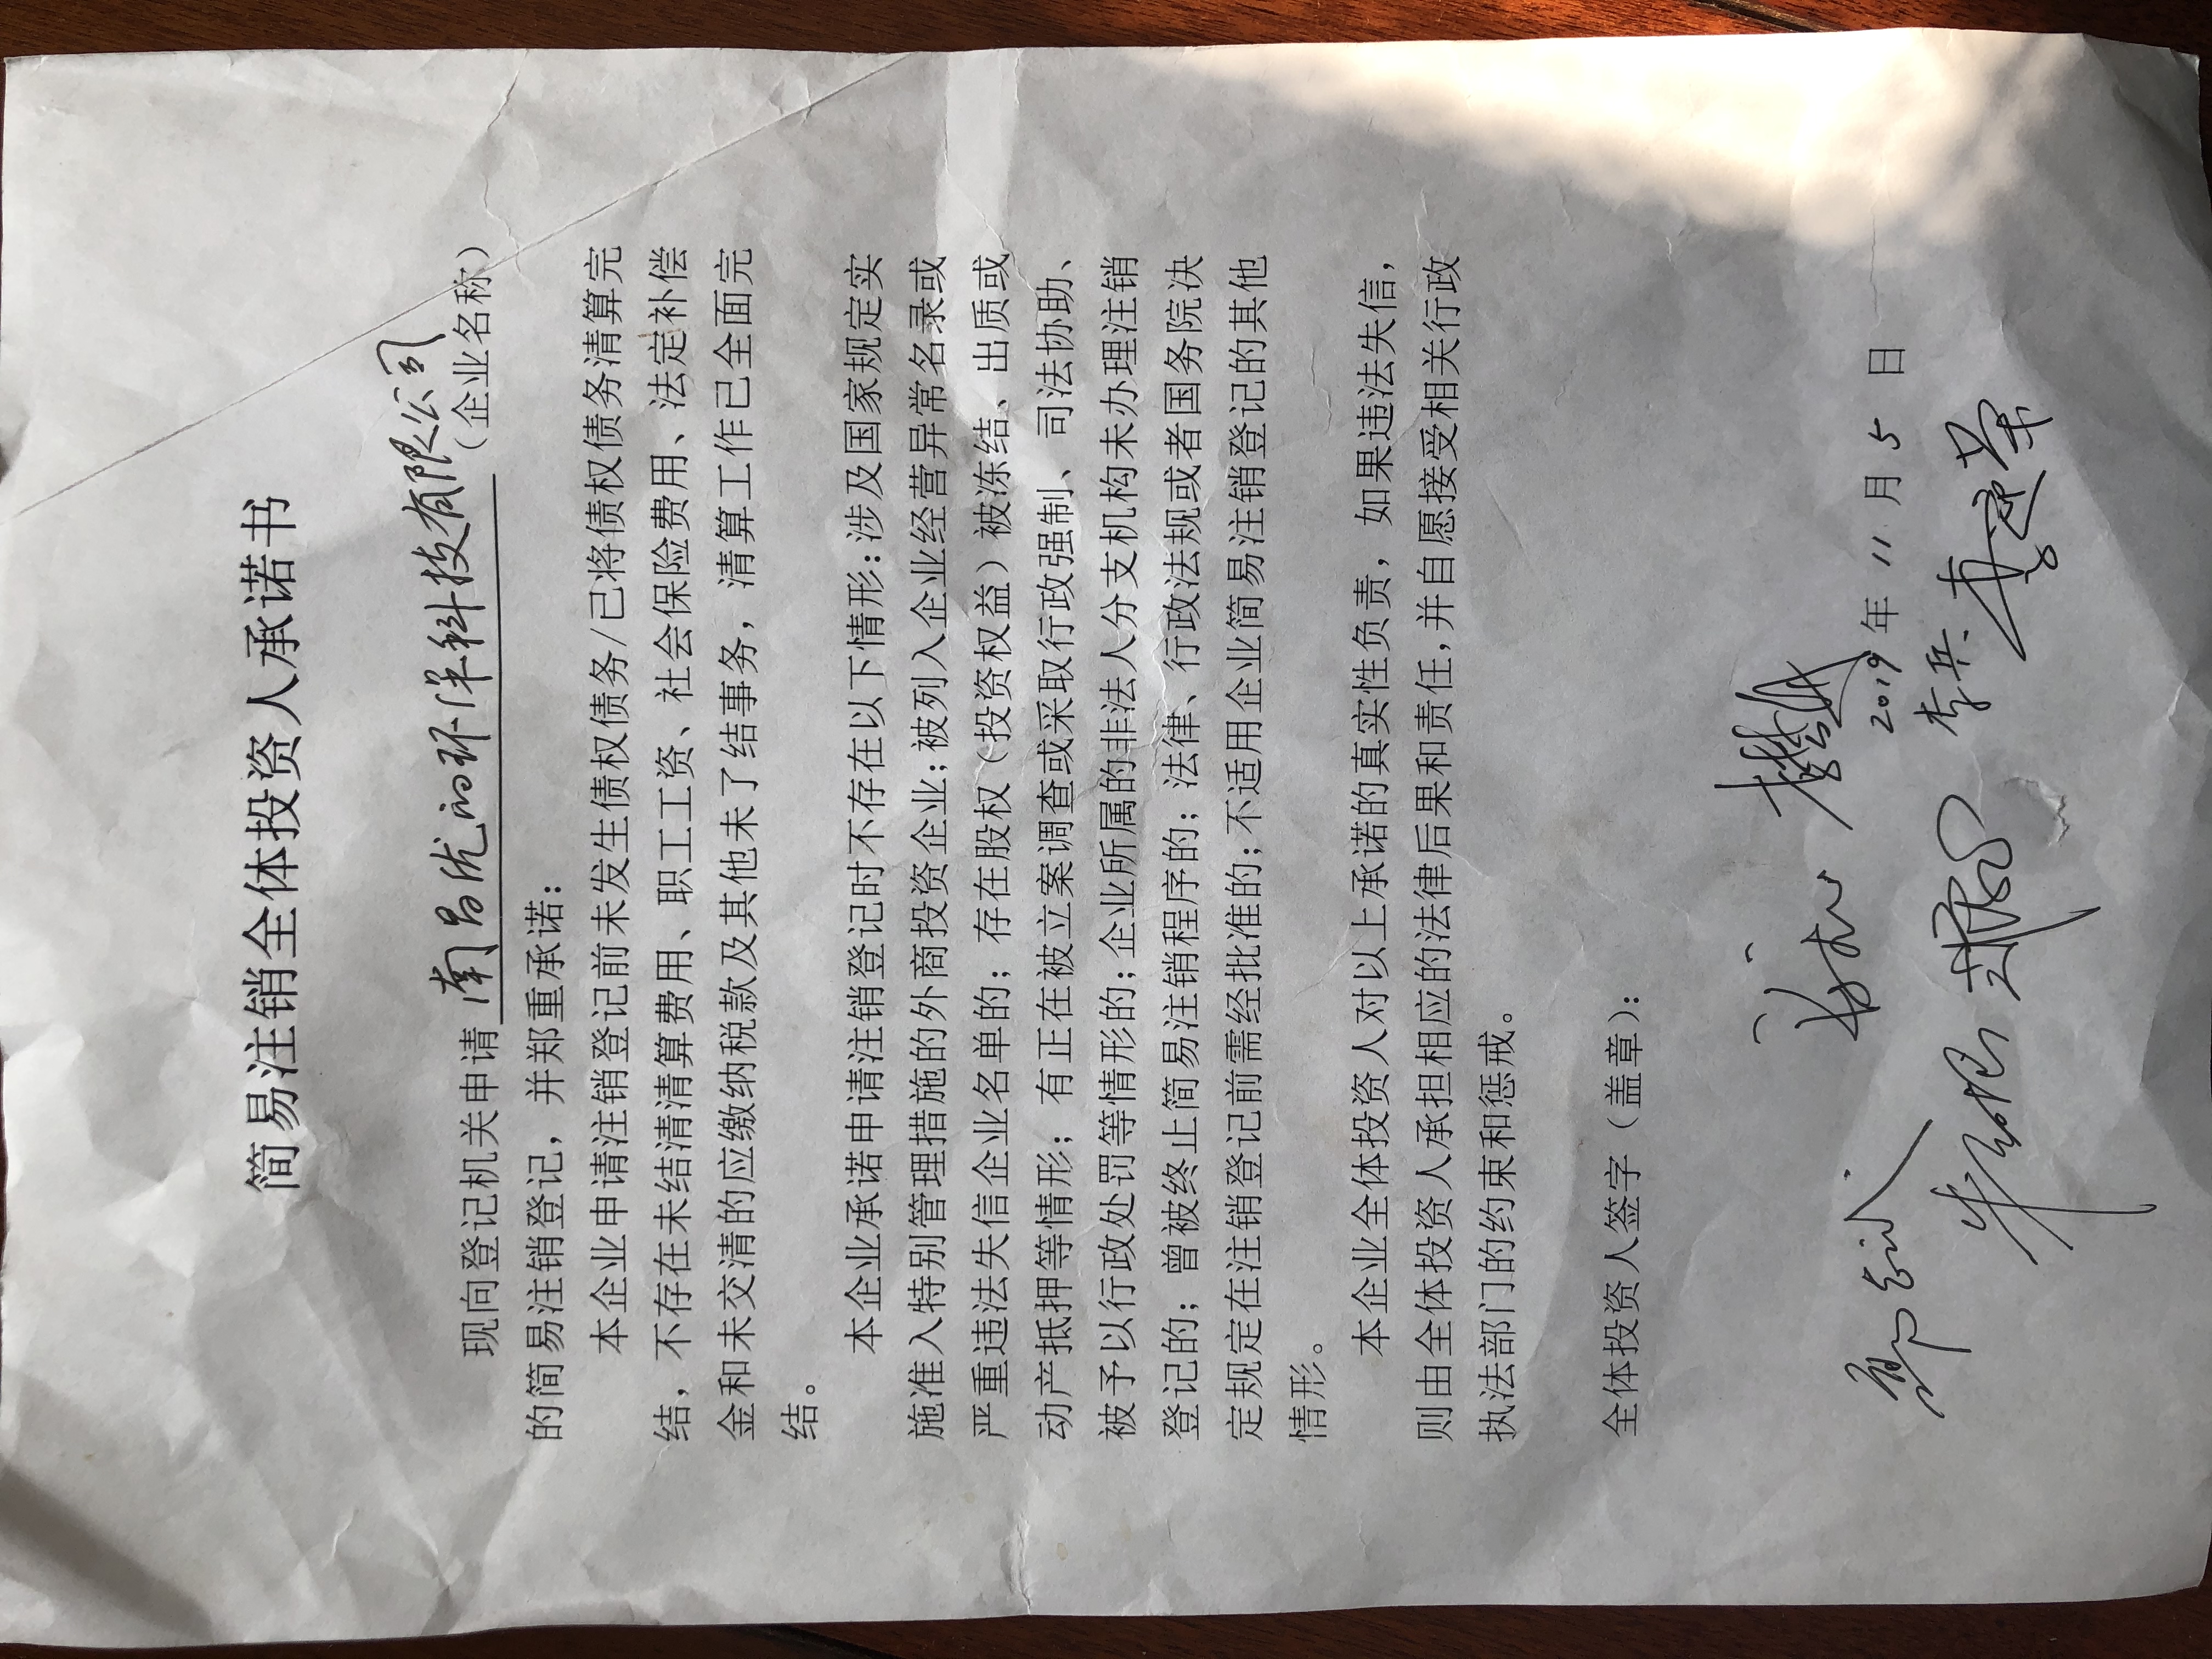 简易注销全体投资人承诺书
现向登记机关申请 南昌优泊环洋科技有限公司 (企业名称)
的简易注销登记，并郑重承诺：
本企业申请注销登记前未发生债权债务/已将债权债务清算完
结，不存在未结清清算费用、职工工资、社会保险费用、法定补偿
金和未交清的应缴纳税款及其他未了结事务，清算工作已全面完
结。
本企业承诺申请注销登记时不存在以下情形：涉及国家规定实
施准入特别管理措施的外商投资企业；被列入企业经营异常名录或
严重违法失信企业名单的；存在股权（投资权益）被冻结、出质或
动产抵押等情形；有正在被立案调查或采取行政强制、司法协助、
被予以行政处罚等情形的；企业所属的非法人分支机构未办理注销
登记的；曾被终止简易注销程序的；法律、行政法规或者国务院决
定规定在注销登记前需经批准的；不适用企业简易注销登记的其他
情形。
本企业全体投资人对以上承诺的真实性负责，如果违法失信，
则由全体投资人承担相应的法律后果和责任，并自愿接受相关行政
执法部门的约束和惩戒。
全体投资人签字（盖章）：
2019 年 11 月 5 日
李兵